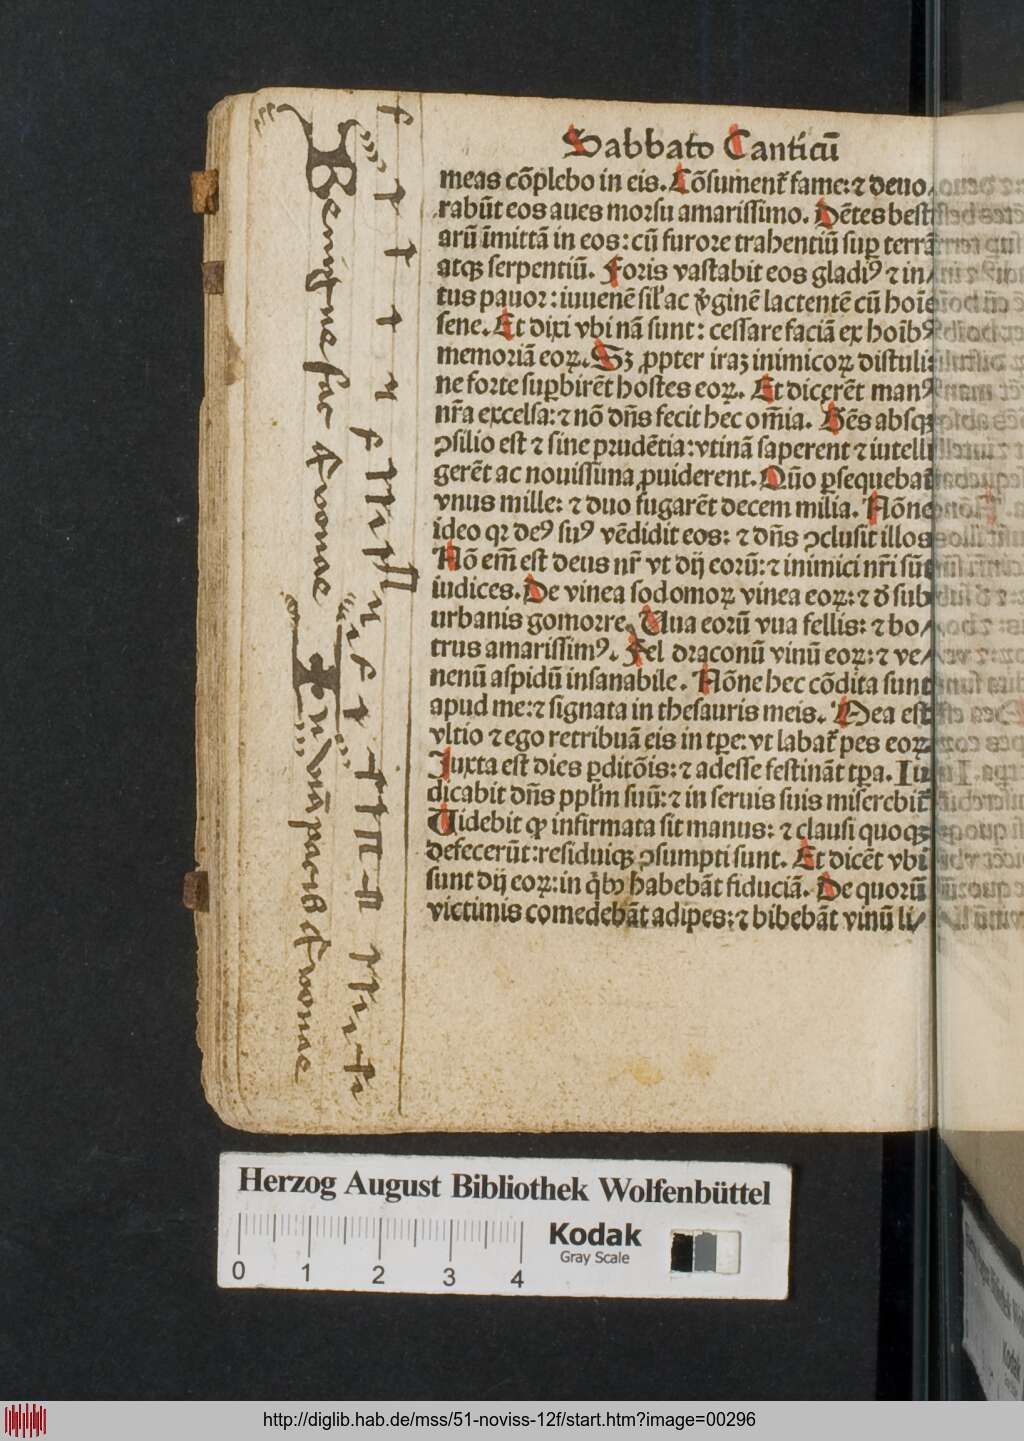 Sabbato Canticū
meas cōplebo in eis. Cōsument᷑ fame: ⁊ deuo/
rabūt eos aues morsu amarissimo. Dētes besti
arū īmittā in eos: cū furore trahentiū suꝑ terrā
atqꝫ serpentiū. Foris vastabit eos gladiꝰ ⁊ in/
tus pauor: iuuenē sil̛ ac v̛ginē lactentē cū hoīe
sene. Et dixi vbi nā sunt: cessare faciā ex hoībꝰ
memoriā eoꝝ. Sꝫ ꝓpter iraꝫ inimicoꝝ distuli:
ne forte suꝑbirēt hostes eoꝝ. Et dicerēt manꝰ
nr̄a excelsa: ⁊ nō dn̄s fecit hec om̄ia. Gēs absqꝫ
ꝯsilio est ⁊ sine prudētia: vtinā saperent ⁊ intelli
gerēt ac nouissima ꝓuiderent. Quō ꝑsequebat᷑
vnus mille: ⁊ duo fugarēt decem milia. Nōne
ideo qꝛ deꝰ suꝰ vēdidit eos: ⁊ dn̄s ꝯclusit illos
Nō em̄ est deus nr̄ vt dij eorū: ⁊ inimici nr̄i sūt
iudices. De vinea sodomoꝝ vinea eoꝝ: ⁊ d̛ sub
urbanis gomorre. Uua eorū vua fellis: ⁊ bo/
trus amarissimꝰ. Fel draconū vinū eoꝝ: ⁊ ve/
nenū aspidū insanabile. Nōne hec cōdita sunt
apud me: ⁊ signata in thesauris meis. Mea est
vltio ⁊ ego retribuā eis in tꝑe: vt labat᷑ pes eoꝝ
Juxta est dies ꝑditōis: ⁊ adesse festināt tꝑa. Iu
dicabit dn̄s ppl̄m suū: ⁊ in seruis suis miserebit᷑
Uidebit ꝙ infirmata sit manus: ⁊ clausi quoqꝫ
defecerūt: residuiqꝫ ꝯsumpti sunt. Et dicēt vbi
sunt dij eoꝝ: in q̛bꝰ habebāt fiduciā. De quorū
victimis comedebāt adipes: ⁊ bibebāt vinū li/
Benigne fac Evovae
In viā pacis Evovae
Herzog August Bibliothek Wolfenbüttel
Kodak
Gray Scale
0 1 2 3 4
http://diglib.hab.de/mss/51-noviss-12f/start.htm?image=00296